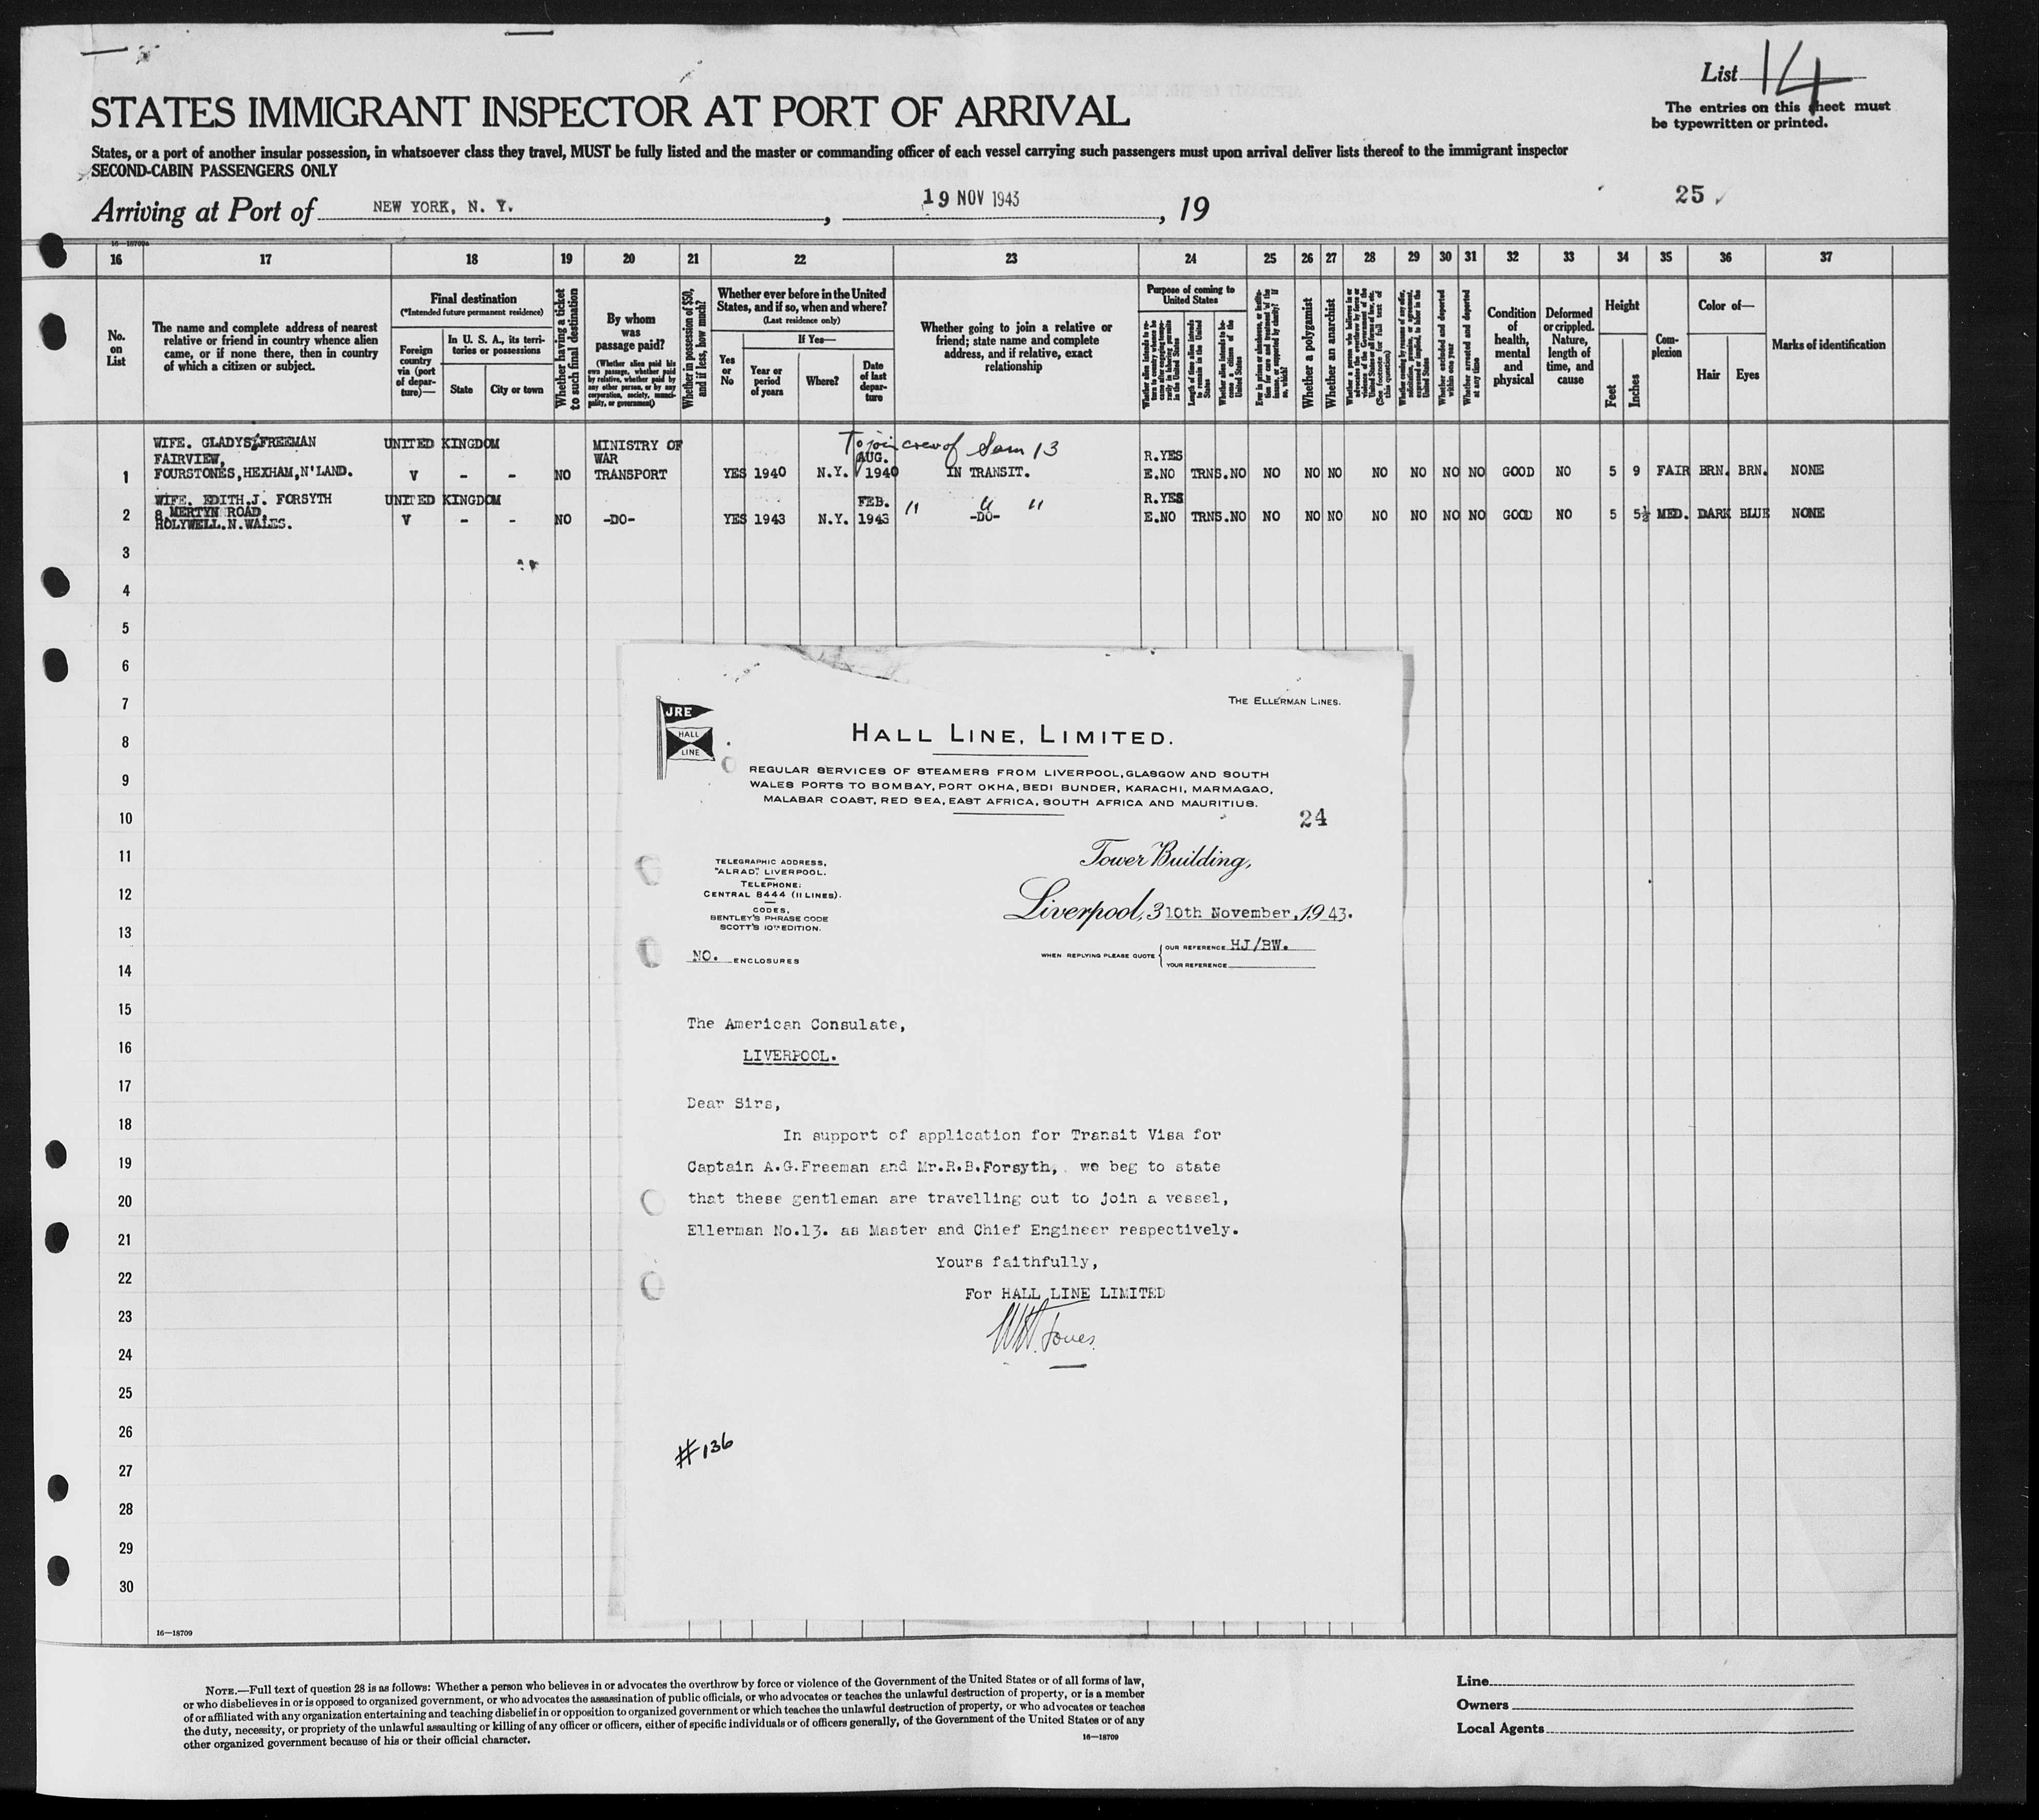 List 14
The entries on this sheet must
be typewritten or printed.
STATES IMMIGRANT INSPECTOR AT PORT OF ARRIVAL
States, or a port of another insular possession, in whatsoever class they travel, MUST be fully listed and the master or commanding officer of each vessel carrying such passengers must upon arrival deliver lists thereof to the immigrant inspector
SECOND-CABIN PASSENGERS ONLY
Arriving at Port of NEW YORK, N. Y. , 19 NOV 1943 , 19
25
16 17 18 19 20 21 22 23 24 25 26 27 28 29 30 31 32 33 34 35 36 37
No. on List
The name and complete address of nearest
relative or friend in country whence alien
came, or if none there, then in country
of which a citizen or subject.
Final destination
(*Intended future permanent residence)
Foreign
country
via (port
of depar-
ture)—
In U. S. A., its terri-
tories or possessions
State
City or town
Whether having a ticket
to such final destination
By whom
was
passage paid?
(Whether alien paid his
own passage, whether paid
by relative, whether paid by
any other person, or by any
corporation, society, munici-
pality, or government)
Whether in possession of $50,
and if less, how much?
Whether ever before in the United
States, and if so, when and where?
(Last residence only)
Yes
or
No
If Yes—
Year or
period
of years
Where?
Date
of last
depar-
ture
Whether going to join a relative or
friend; state name and complete
address, and if relative, exact
relationship
Purpose of coming to
United States
Length of time alien intends
to remain in the United
States
Whether alien intends to be-
come a citizen of the
United States
Whether a polygamist
Whether an anarchist
(See footnote for full text of
this question)
Whether excluded and deported
within one year
Whether arrested and deported
at any time
Condition
of
health,
mental
and
physical
Deformed
or crippled.
Nature,
length of
time, and
cause
Height
Feet
Inches
Com-
plexion
Color of—
Hair
Eyes
Marks of identification
To join crew of Sam 13
1 WIFE. GLADYS FREEMAN
FAIRVIEW,
FOURSTONES, HEXHAM, N'LAND.
UNITED KINGDOM
V - - NO
MINISTRY OF
WAR
TRANSPORT
YES 1940 N.Y. AUG. 1940 IN TRANSIT.
R.YES
E.NO TRNS.NO NO NO NO NO NO NO NO GOOD NO 5 9 FAIR BRN. BRN. NONE
2 WIFE. EDITH.J. FORSYTH
8 MERTYN ROAD,
HOLYWELL.N.WALES.
UNITED KINGDOM
V - - NO -DO- YES 1943 N.Y. FEB. 1943 " " " -DO-
R.YES
E.NO TRNS.NO NO NO NO NO NO NO NO GOOD NO 5 5½ MED. DARK BLUE NONE
3
4
5
6
7
8
9
10
11
12
13
14
15
16
17
18
19
20
21
22
23
24
25
26
27
28
29
30
JRE
HALL
LINE
THE ELLERMAN LINES.
HALL LINE, LIMITED.
REGULAR SERVICES OF STEAMERS FROM LIVERPOOL, GLASGOW AND SOUTH
WALES PORTS TO BOMBAY, PORT OKHA, BEDI BUNDER, KARACHI, MARMAGAO,
MALABAR COAST, RED SEA, EAST AFRICA, SOUTH AFRICA AND MAURITIUS.
24
TELEGRAPHIC ADDRESS,
"ALRAD," LIVERPOOL.
TELEPHONE:
CENTRAL 8444 (11 LINES).
CODES,
BENTLEY'S PHRASE CODE
SCOTT'S 10TH EDITION.
Tower Building,
Liverpool, 3 10th November, 1943.
NO. ENCLOSURES
WHEN REPLYING PLEASE QUOTE
OUR REFERENCE HJ/BW.
YOUR REFERENCE
The American Consulate,
LIVERPOOL.
Dear Sirs,
In support of application for Transit Visa for
Captain A.G.Freeman and Mr.R.B.Forsyth, we beg to state
that these gentleman are travelling out to join a vessel,
Ellerman No.13. as Master and Chief Engineer respectively.
Yours faithfully,
For HALL LINE LIMITED
Jones.
#136
16—18709
NOTE.—Full text of question 28 is as follows: Whether a person who believes in or advocates the overthrow by force or violence of the Government of the United States or of all forms of law,
or who disbelieves in or is opposed to organized government, or who advocates the assassination of public officials, or who advocates or teaches the unlawful destruction of property, or is a member
of or affiliated with any organization entertaining and teaching disbelief in or opposition to organized government or which teaches the unlawful destruction of property, or who advocates or teaches
the duty, necessity, or propriety of the unlawful assaulting or killing of any officer or officers, either of specific individuals or of officers generally, of the Government of the United States or of any
other organized government because of his or their official character.
16—18709
Line
Owners
Local Agents